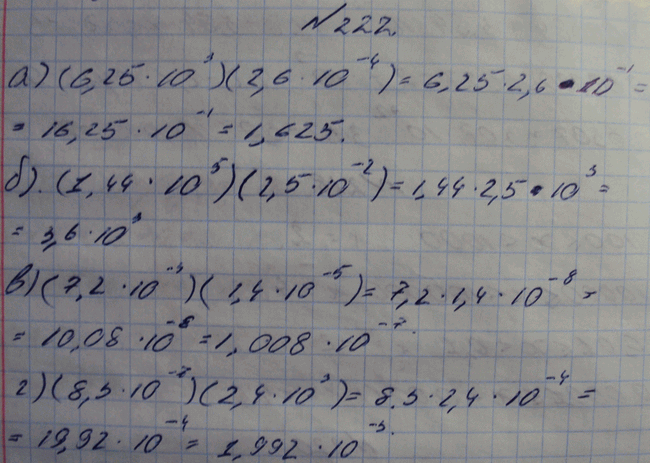 №222.
а) (6,25·10³)(2,6·10⁻⁴) = 6,25·2,6·10⁻¹ =
= 16,25·10⁻¹ = 1,625.
б). (1,44·10⁵)(2,5·10⁻²) = 1,44·2,5·10³ =
= 3,6·10³
в) (7,2·10⁻³)(1,4·10⁻⁵) = 7,2·1,4·10⁻⁸ =
= 10,08·10⁻⁸ = 1,008·10⁻⁷.
г) (8,3·10⁻⁷)(2,4·10³) = 8,3·2,4·10⁻⁴ =
= 19,92·10⁻⁴ = 1,992·10⁻³.